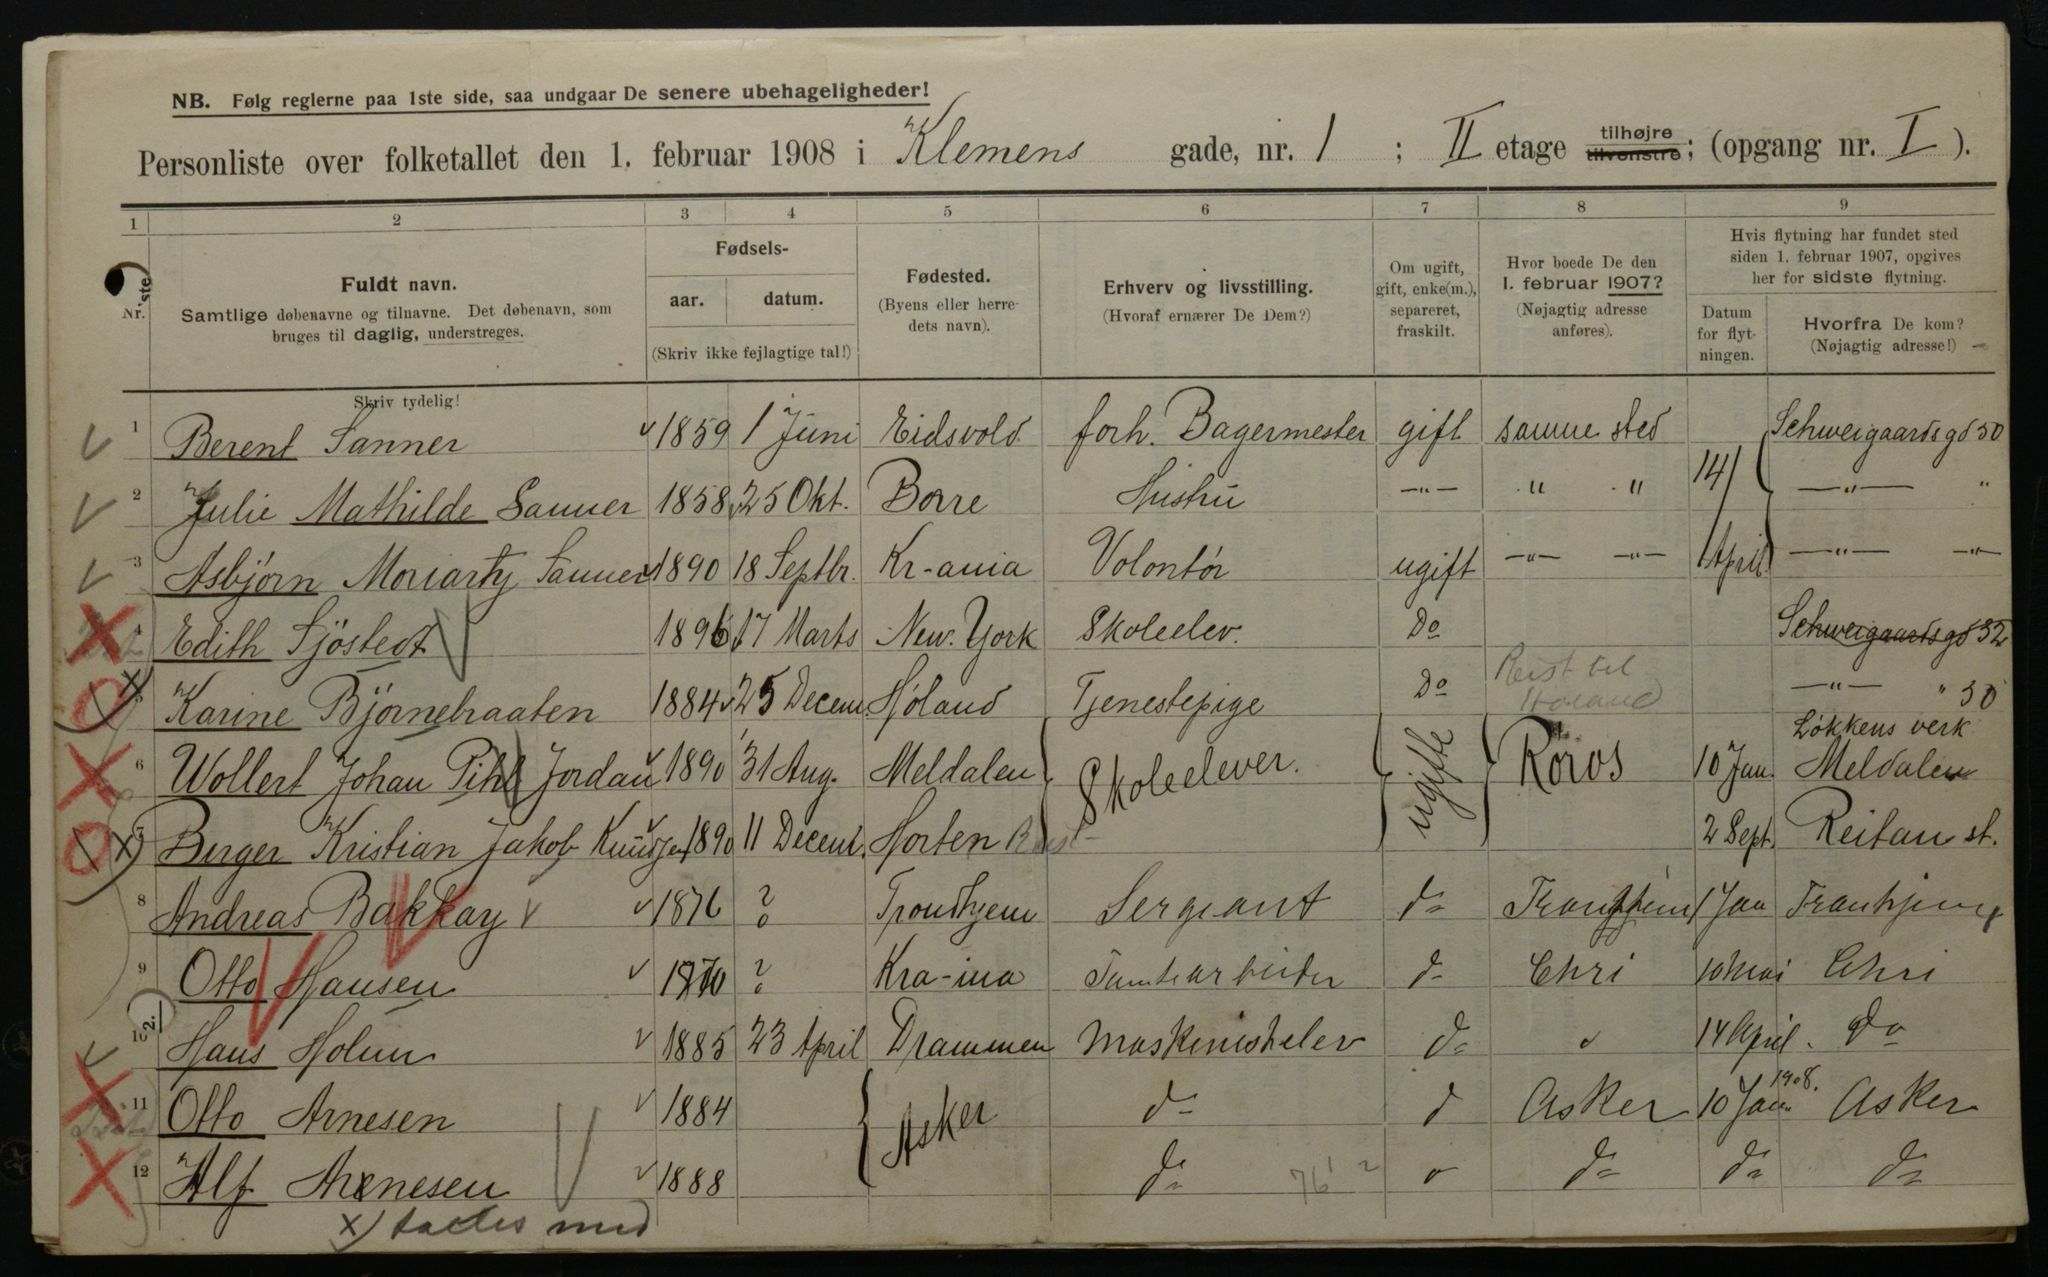 NB. Følg reglerne paa 1ste side, saa undgaar De senere ubehageligheder!
Personliste over folketallet den 1. februar 1908 i Klemens gade, nr. 1 ; II etage tilhøjre tilvenstre ; (opgang nr. I ).
1 2 3 4 5 6 7 8 9
Nr. Fuldt navn. Samtlige døbenavne og tilnavne. Det døbenavn, som bruges til daglig, understreges.
Fødsels- aar. datum. (Skriv ikke fejlagtige tal!)
Fødested. (Byens eller herredets navn).
Erhverv og livsstilling. (Hvoraf ernærer De Dem?)
Om ugift, gift, enke(m.), separeret, fraskilt.
Hvor boede De den 1. februar 1907? (Nøjagtig adresse anføres).
Hvis flytning har fundet sted siden 1. februar 1907, opgives her for sidste flytning.
Datum for flytningen. Hvorfra De kom? (Nøjagtig adresse!)
Skriv tydelig!
1 Berent Sanner 1859 1 Juni Eidsvold forh. Bagermester gift samme sted Schweigaardsgd 50
2 Julie Mathilde Sanner 1858 25 Okt. Borre Hustru —"— " " 14/ —"— "
3 Asbjørn Moriarty Sanner 1890 18 Septbr. Kr-ania Volontör ugift —"— —"— April —"— —"—
4 Edith Sjöstedt 1896 17 Marts New. York Skoleelev. Do Schweigaardsgd 32
5 Karine Björnebraaten 1884 25 Decem. Høland Tjenestepige Do Reist til Høland —"— " 30
6 Wollert Johan Pihl Jordan 1890 31 Aug. Meldalen Skoleelever. ugifte Röros 10 Jan. Løkkens verk Meldalen
7 Berger Kristian Jakob Knudsen 1890 11 Decem. Horten 2 Sept. Reitan st.
8 Andreas Bakkay 1876 ? Trondhjem Sergeant do Trondhjem 1 Jan Tronhjem
9 Otto Hansen 1870 ? Kra-ina do Chri 10 Mai Chri
2.
10 Hans Holm 1885 23 April Drammen Maskinistelev do 14 April. do
11 Otto Arnesen 1884 Asker do d Asker 10 Jan. 1908. Asker
12 Alf Arnesen 1888 do do do do
x) taltes med